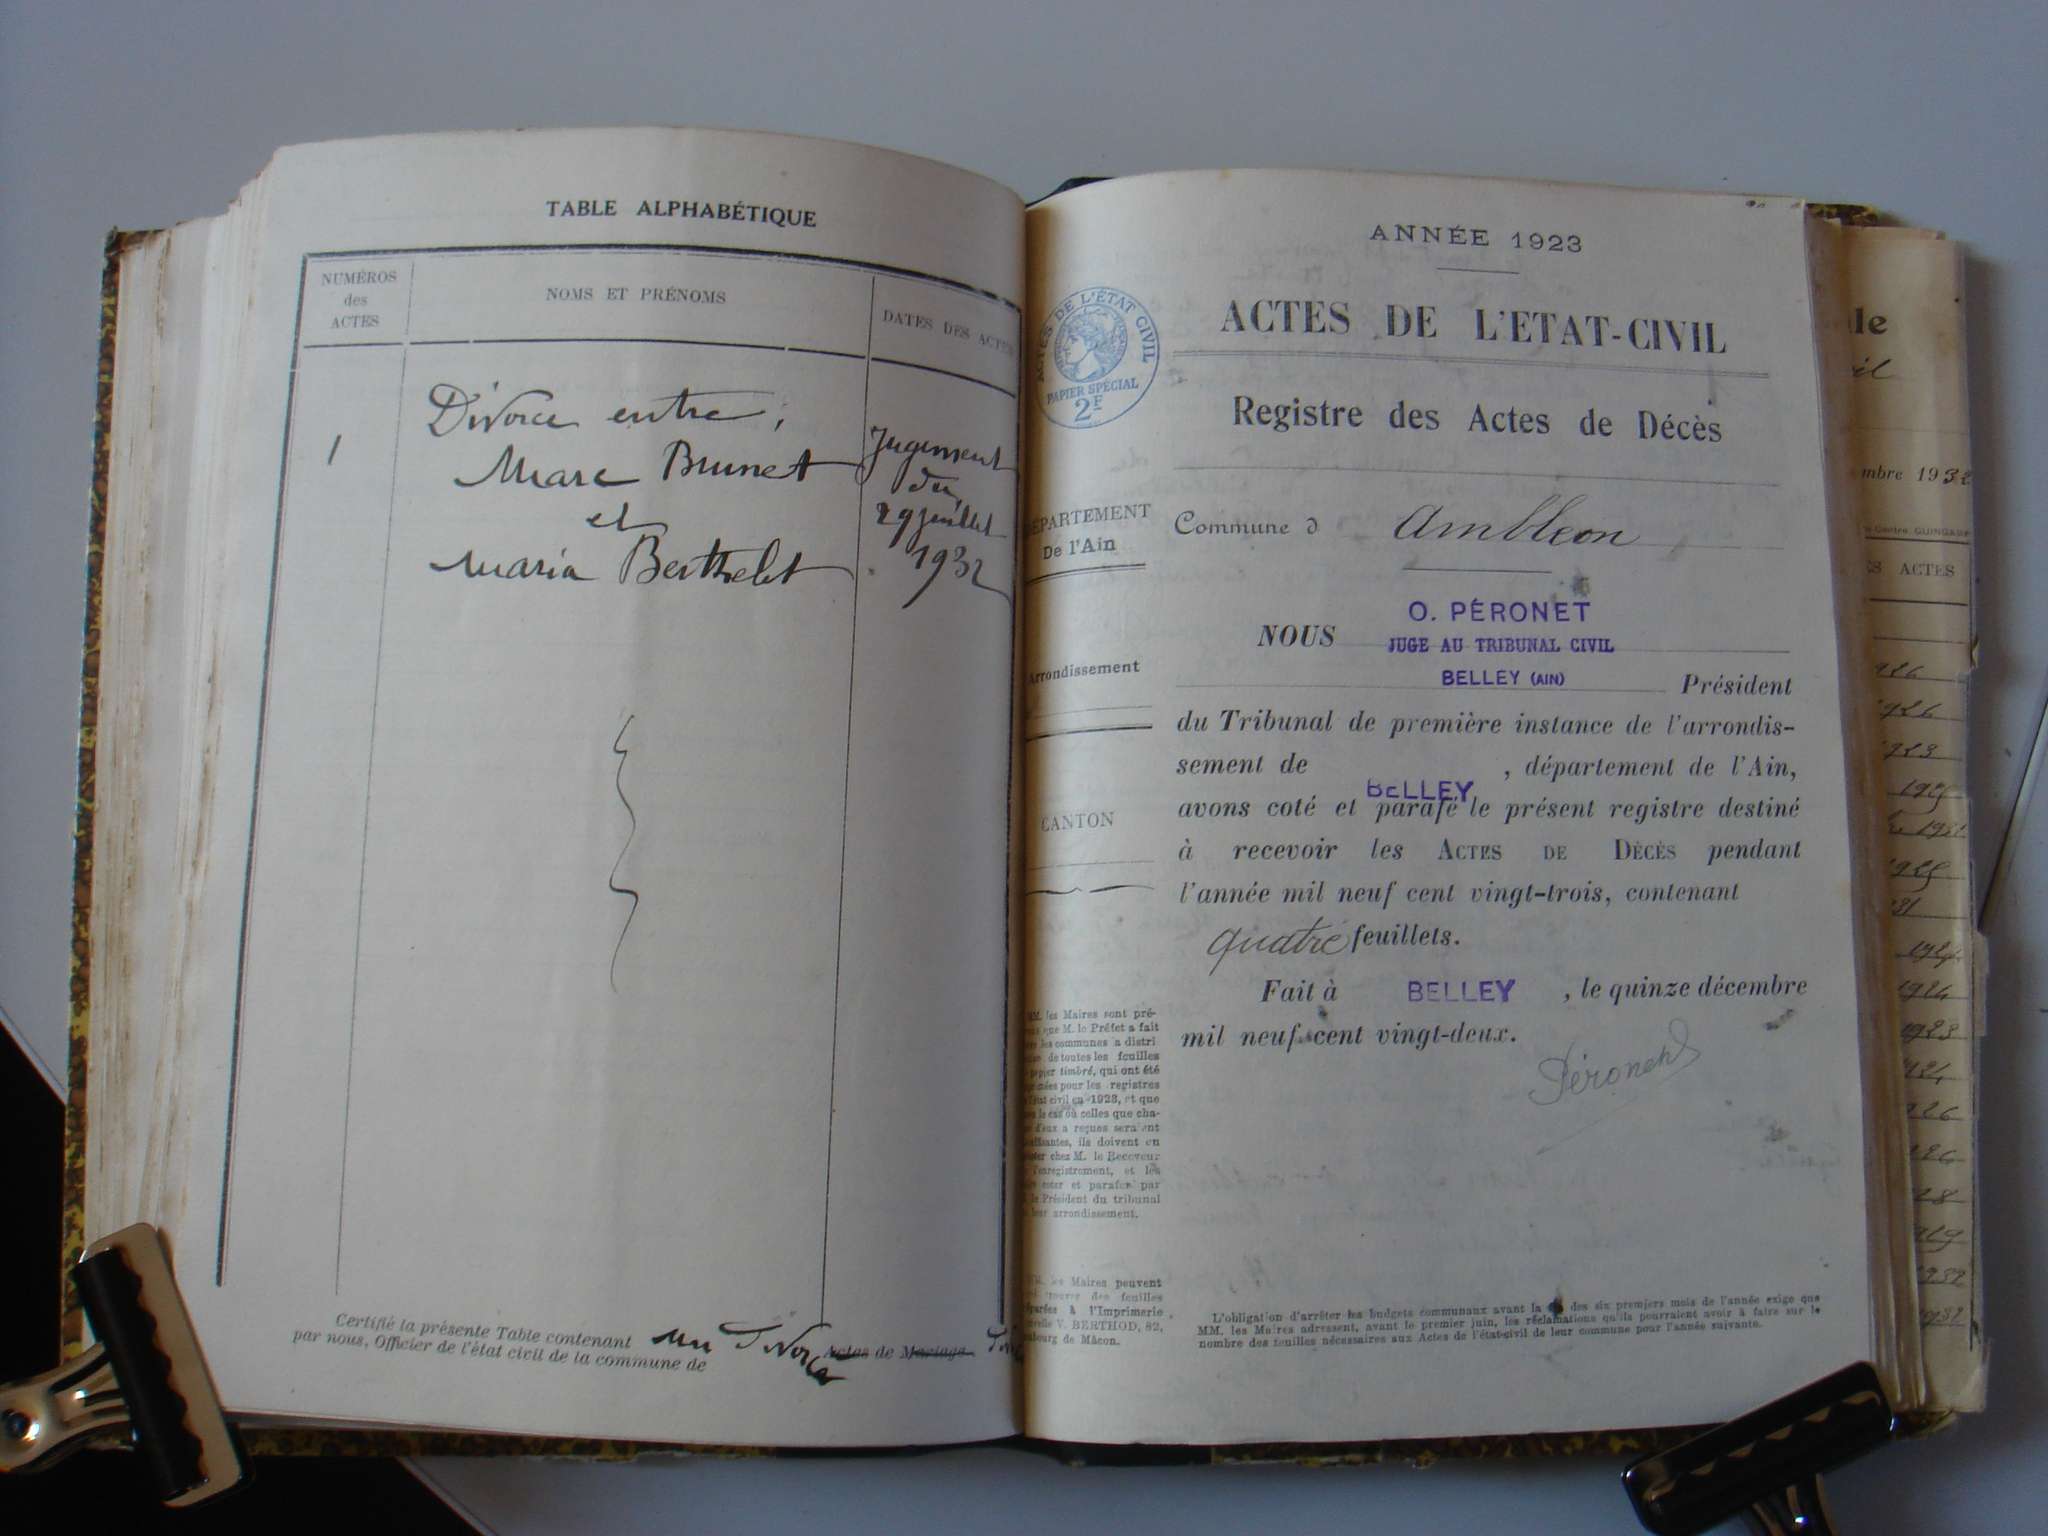 TABLE ALPHABÉTIQUE
NUMÉROS
des
ACTES
NOMS ET PRÉNOMS
DATES DES ACTES
1
Divorce entre,
Marc Brunet
et
Maria Berthelet
Jugement
du
29 juillet
1932
Certifié la présente Table contenant un Divorce Actes de Mariage
par nous, Officier de l'état civil de la commune de
ANNÉE 1923
ACTES DE L'ETAT-CIVIL
ACTES DE L'ÉTAT CIVIL
PAPIER SPÉCIAL
2F
Registre des Actes de Décès
DÉPARTEMENT
De l'Ain
Commune d Ambléon
Arrondissement
CANTON
NOUS O. PÉRONET
JUGE AU TRIBUNAL CIVIL
BELLEY (AIN)
Président
du Tribunal de première instance de l'arrondis-
sement de BELLEY, département de l'Ain,
avons coté et parafé le présent registre destiné
à recevoir les ACTES DE DÉCÈS pendant
l'année mil neuf cent vingt-trois, contenant
quatre feuillets.
Fait à BELLEY, le quinze décembre
mil neuf cent vingt-deux.
Péronet
MM. les Maires sont pré-
que M. le Préfet a fait
les communes a distri
de toutes les feuilles
papier timbré, qui ont été
pour les registres
l'état civil en 1923, et que
le cas où celles que cha-
d'eux a reçues seraient
ils doivent en
chez M. le Receveur
l'enregistrement, et les
coter et parafer par
le Président du tribunal
leur arrondissement.
MM. les Maires peuvent
des feuilles
à l'Imprimerie
V. BERTHOD, 82,
de Mâcon.
L'obligation d'arrêter les budgets communaux avant la des six premiers mois de l'année exige que
MM. les Maires adressent, avant le premier juin, les réclamations qu'ils pourraient avoir à faire sur le
nombre des feuilles nécessaires aux Actes de l'état-civil de leur commune pour l'année suivante.
mbre 1932
GUINGAMP
ACTES